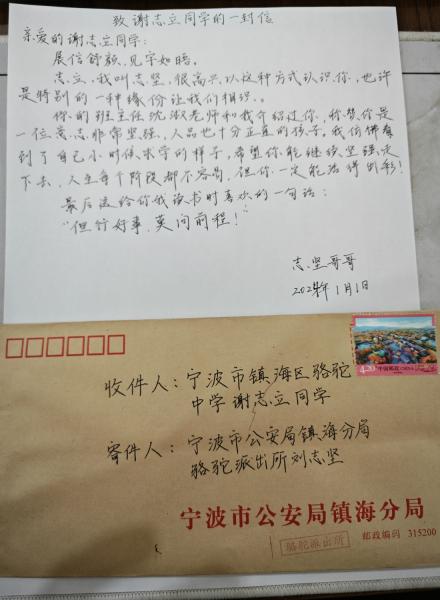 致谢志立同学的一封信
亲爱的谢志立同学：
展信舒颜，见字如晤。
志立，我叫志坚，很高兴以这种方式认识你，也许
是特别的一种缘份让我们相识。
你的班主任沈淑老师和我介绍过你，称赞你是
一位意志非常坚强、人品也十分正直的孩子。我仿佛看
到了自己小时候求学的样子，希望你能继续坚强走
下去，人生每个阶段都不容易，但你一定能活得出彩！
最后送给你我读书时喜欢的一句话：
“但行好事，莫问前程！”
志坚哥哥
1月1日
4.20
中国邮政 CHINA
收件人：宁波市镇海区骆驼
中学谢志立同学
寄件人：宁波市公安局镇海分局
骆驼派出所刘志坚
宁波市公安局镇海分局
骆驼派出所
邮政编码 315200